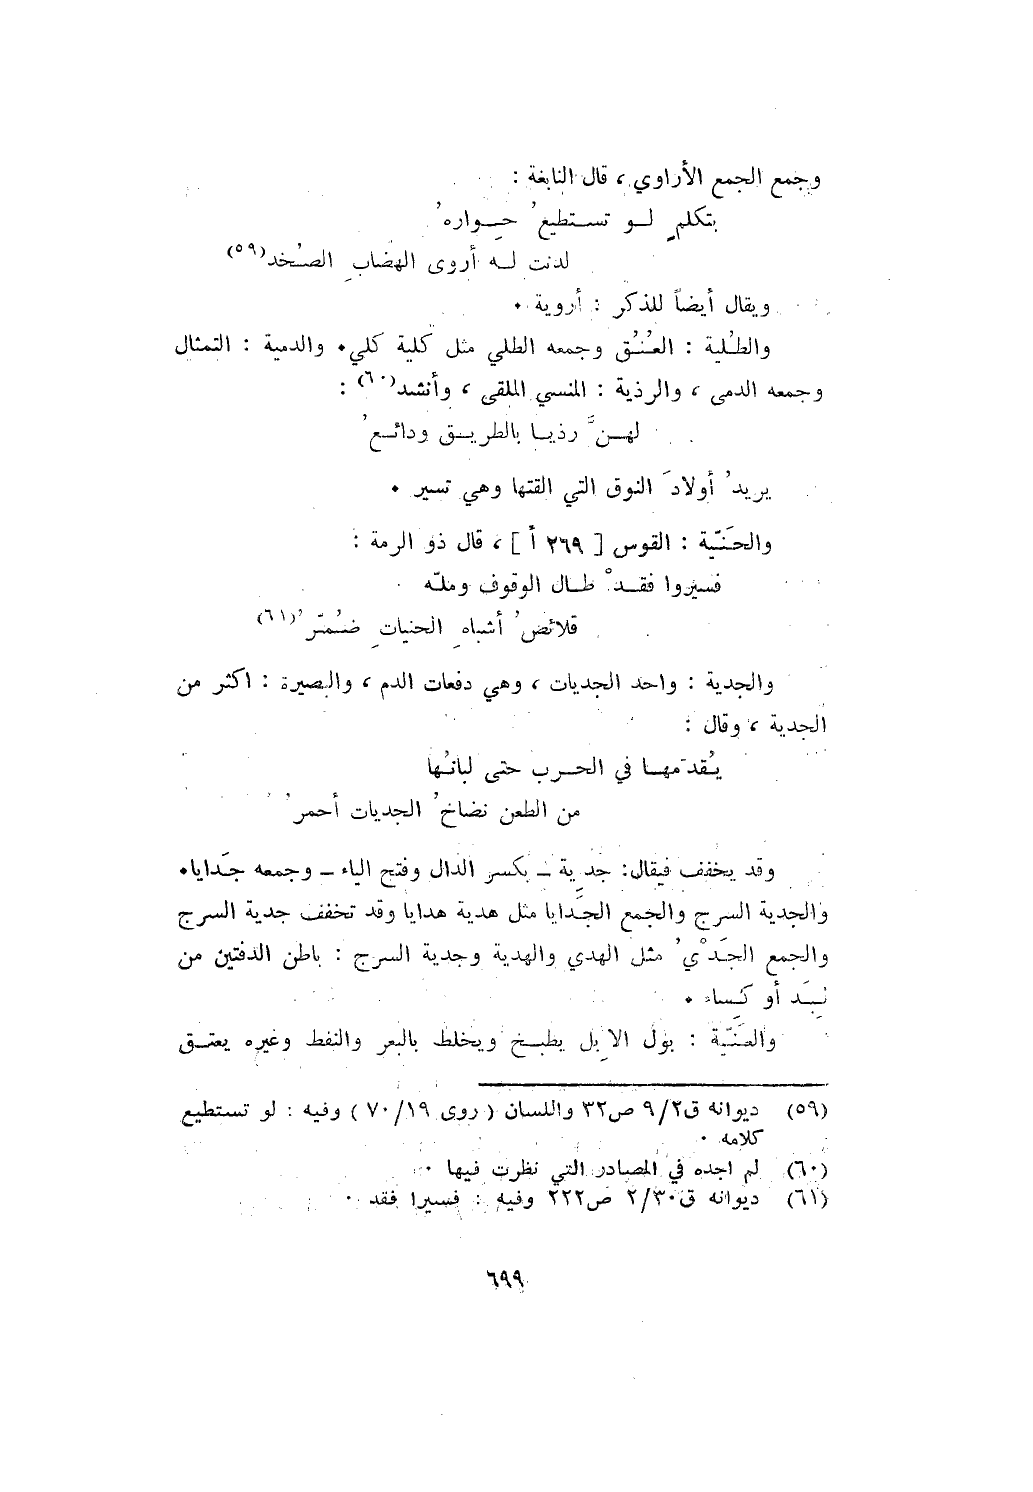 وجمع الجمع الأراوي ، قال النابغة :
بتكلمٍ لو تستطيعُ حِوارهُ
لدنت له أروى الهضابِ الصُخد(٥٩)
ويقال أيضاً للذكر : أروية ٠
والطُلية : العُنُق وجمعه الطلي مثل كلية كلي٠ والدمية : التمثال
وجمعه الدمى ، والرذية : المنسي الملقى ، وأنشد(٦٠) :
لهنَّ رذيا بالطريق ودائعُ
يريدُ أولادَ النوق التي القتها وهي تسير ٠
والحَنيّة : القوس [ ٢٦٩ أ ] ، قال ذو الرمة :
فسيروا فقدْ طال الوقوف وملّه
قلائصُ أشباهِ الحنياتِ ضُمّرُ(٦١)
والجدية : واحد الجديات ، وهي دفعات الدم ، والبصيرة : اكثر من
الجدية ، وقال :
يُقدّمها في الحرب حتى لبانُها
من الطعن نضاخُ الجديات أحمرُ
وقد يخفف فيقال: جَدِية ــ بكسر الدال وفتح الياء ــ وجمعه جَدايا٠
والجدية السرج والجمع الجَدايا مثل هدية هدايا وقد تخفف جدية السرج
والجمع الجَدْيُ مثل الهدي والهدية وجدية السرج : باطن الدفتين من
لِبَد أو كِساء ٠
والعَنيّة : بول الابِل يطبخ ويخلط بالبعر والنفط وغيره يعتق
(٥٩) ديوانه ق٩/٢ ص٣٢ واللسان ( روى ٧٠/١٩ ) وفيه : لو تستطيع
كلامه ٠
(٦٠) لم اجده في المصادر التي نظرت فيها ٠
(٦١) ديوانه ق٢/٣٠ ص٢٢٢ وفيه : فسيرا فقد ٠
٦٩٩